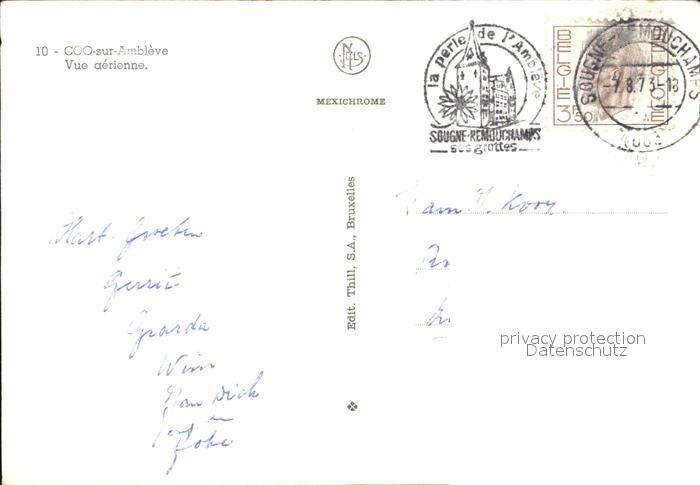 10 - COO-sur-Amblève
Vue aérienne.
NELS
MEXICHROME
la perle de l'Amblève
SOUGNE-REMOUCHAMPS
ses grottes
BELGIE BELGIQUE
3,50
SOUGNE-REMOUCHAMPS
-7.8.73-18
Edit. Thill, S.A., Bruxelles
Fam. Kooy.
Hart. Groeten
Gerrit
Grarda
Wim
Jan Dick
en
privacy protection
Datenschutz